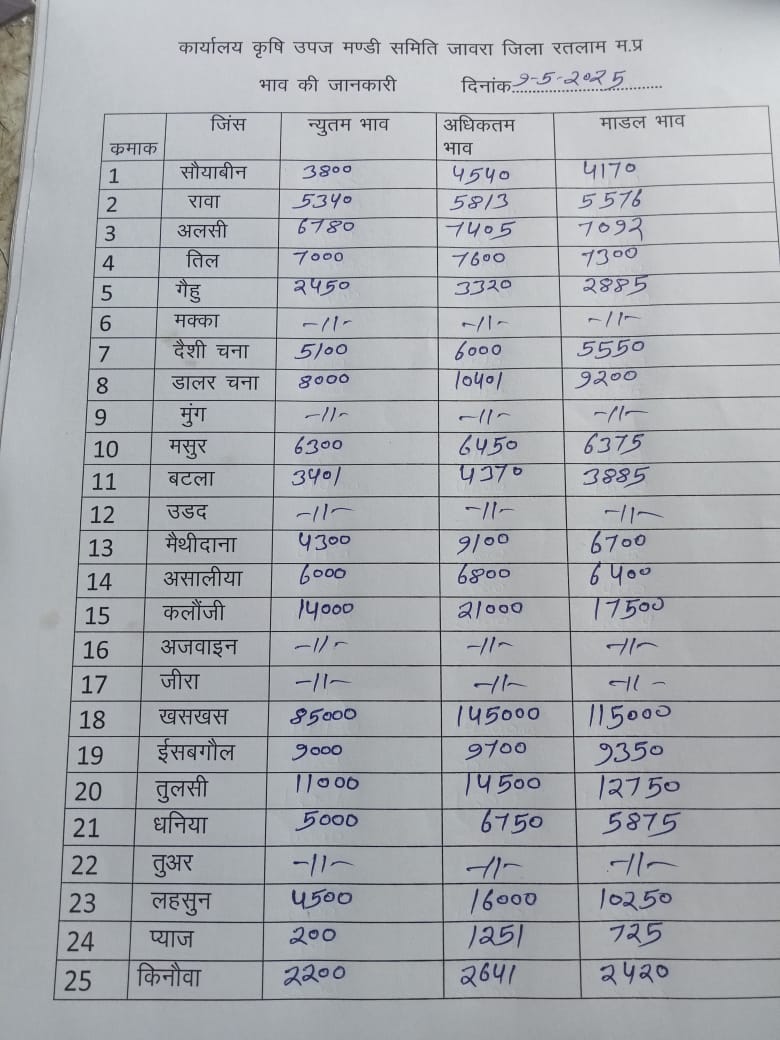 कार्यालय कृषि उपज मण्डी समिति जावरा जिला रतलाम म.प्र
भाव की जानकारी दिनांक 9-5-2025
कमाक जिंस न्युतम भाव अधिकतम भाव माडल भाव
1 सौयाबीन 3800 4540 4170
2 रावा 5340 5813 5576
3 अलसी 6780 7405 7092
4 तिल 7000 7600 7300
5 गैहु 2450 3320 2885
6 मक्का -11- -11- -11-
7 दैशी चना 5100 6000 5550
8 डालर चना 8000 10401 9200
9 मुंग -11- -11- -11-
10 मसुर 6300 6450 6375
11 बटला 3401 4370 3885
12 उडद -11- -11- -11-
13 मैथीदाना 4300 9100 6700
14 असालीया 6000 6800 6400
15 कलौंजी 14000 21000 17500
16 अजवाइन -11- -11- -11-
17 जीरा -11- -11- -11-
18 खसखस 85000 145000 115000
19 ईसबगौल 9000 9700 9350
20 तुलसी 11000 14500 12750
21 धनिया 5000 6750 5875
22 तुअर -11- -11- -11-
23 लहसुन 4500 16000 10250
24 प्याज 200 1251 725
25 किनौवा 2200 2641 2420